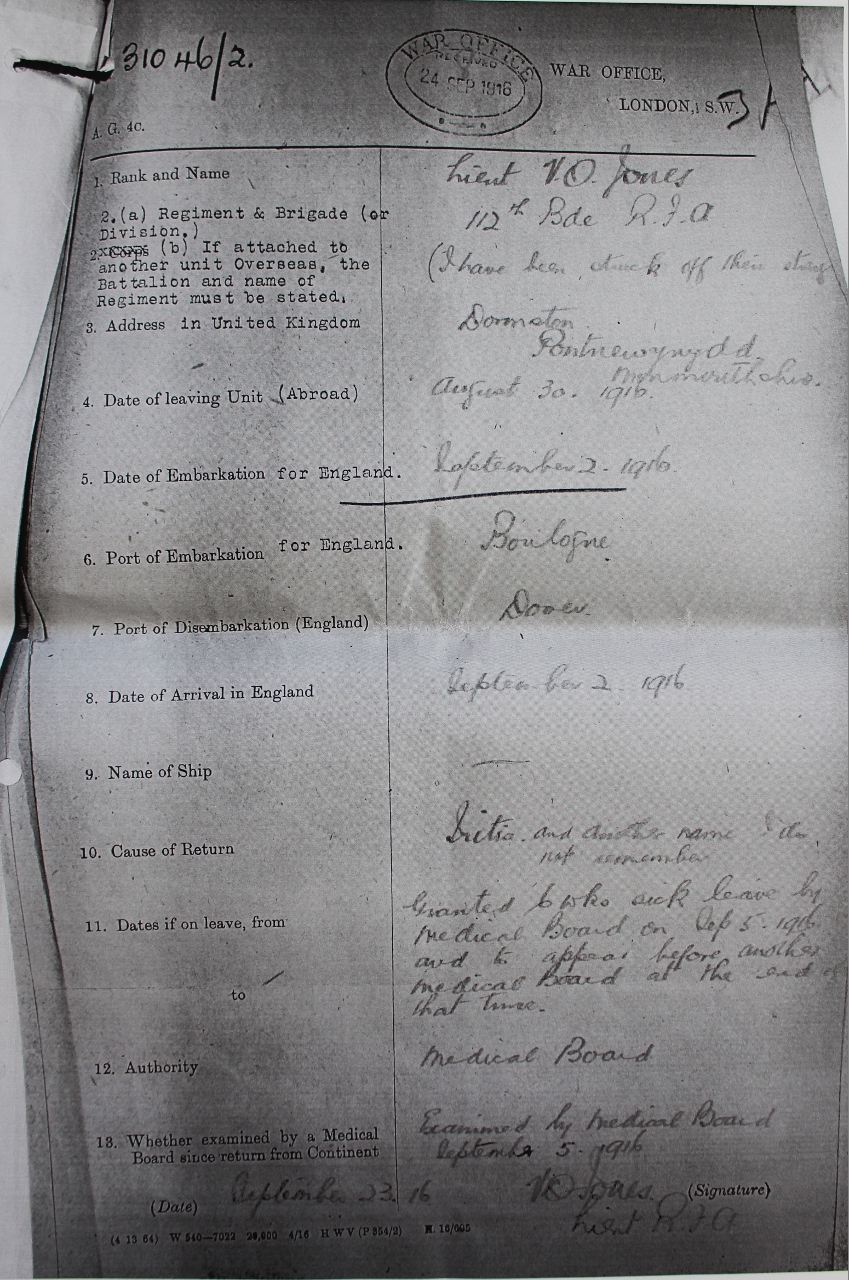 31046/2.
WAR OFFICE
RECEIVED
24 SEP 1916
WAR OFFICE,
LONDON, S.W.
A. G. 4c.
1. Rank and Name
Lieut V.O. Jones
2.(a) Regiment & Brigade (or
Division.)
112th Bde R.F.A
2. Corps (b) If attached to
another unit Overseas, the
Battalion and name of
Regiment must be stated.
(I have been struck off their
3. Address in United Kingdom
Dormston
Pontnewynydd
Monmouthshire.
4. Date of leaving Unit (Abroad)
August 30. 1916.
5. Date of Embarkation for England.
September 2. 1916.
6. Port of Embarkation for England.
Boulogne.
7. Port of Disembarkation (England)
Dover.
8. Date of Arrival in England
September 2. 1916
9. Name of Ship
—
10. Cause of Return
and another name I do
not remember
11. Dates if on leave, from
to
Granted 6 wks sick leave by
Medical Board on Sep 5. 1916
and to appear before another
Medical Board at the end of
that time.
12. Authority
Medical Board
13. Whether examined by a Medical
Board since return from Continent
Examined by Medical Board
September 5. 1916
(Date) September 23. 16
VO Jones. (Signature)
Lieut R.F.A
(4 13 64) W 540—7022 20,000 4/16 H W V (P 354/2) H. 16/605